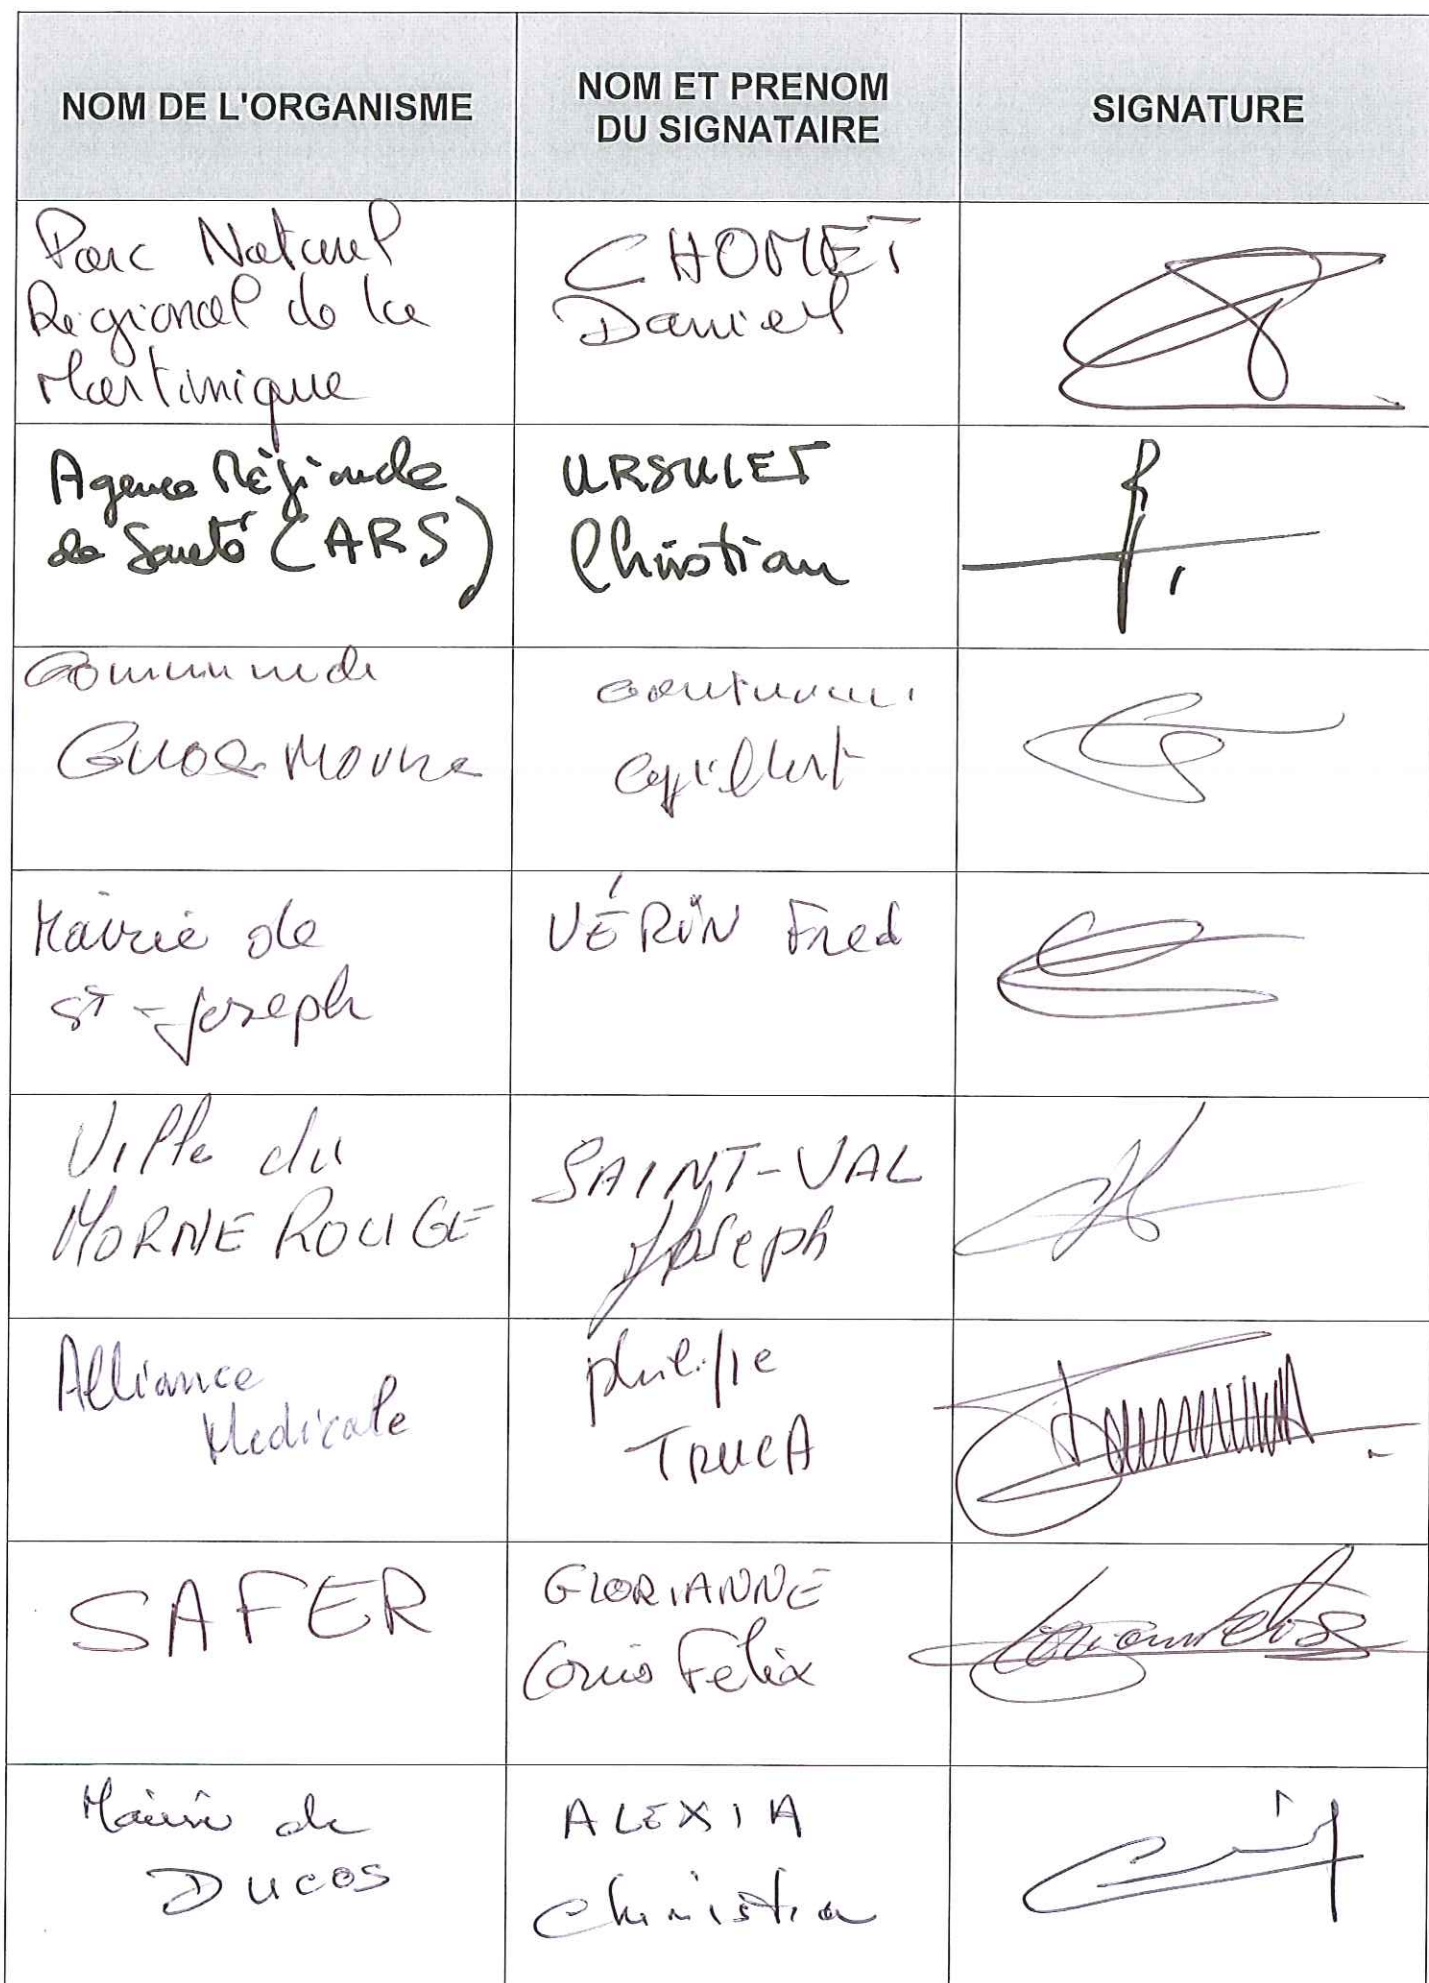 NOM DE L'ORGANISME
NOM ET PRENOM
DU SIGNATAIRE
SIGNATURE
Parc Naturel
Régional de la
Martinique
CHOMET
Daniel
Agence Régionale
de Santé (ARS)
URSULET
Christian
Commune de
Mairie de
St-Joseph
VÉRIN Fred
Ville du
MORNE ROUGE
SAINT-VAL
Joseph
Alliance
Medicale
philippe
TRUCA
SAFER
GLORIANNE
Louis Felix
Mairie de
DUCOS
ALEXIA